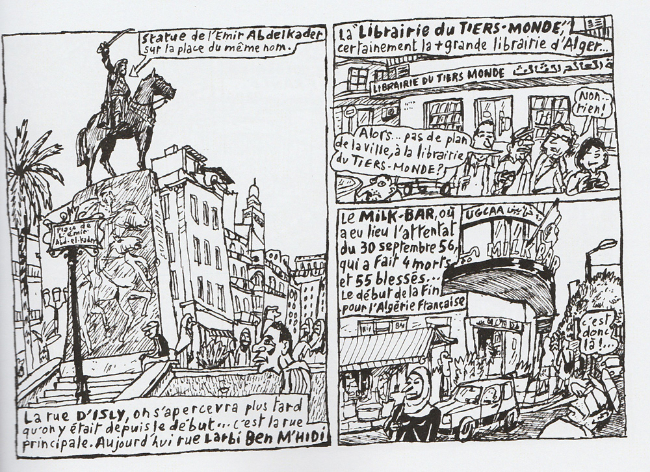 Statue de l'Emir Abdelkader
sur la place du même nom.
Place de
l'Emir
Abd-el-kader
La rue D'ISLY, on s'apercevra plus tard
qu'on y était depuis le début... c'est la rue
principale. Aujourd'hui rue Larbi Ben M'HIDI
La "Librairie du TIERS-MONDE",
certainement la + grande librairie d'Alger...
LIBRAIRIE DU TIERS MONDE
Non...
rien!
Alors... pas de plan
de la ville, à la librairie
du TIERS-MONDE?!
Le MILK-BAR, où
a eu lieu l'attentat
du 30 septembre 56,
qui a fait 4 morts
et 55 blessés...
Le début de la fin
pour l'Algérie Française
UGCAA
MILK BAR
c'est
donc
là!...